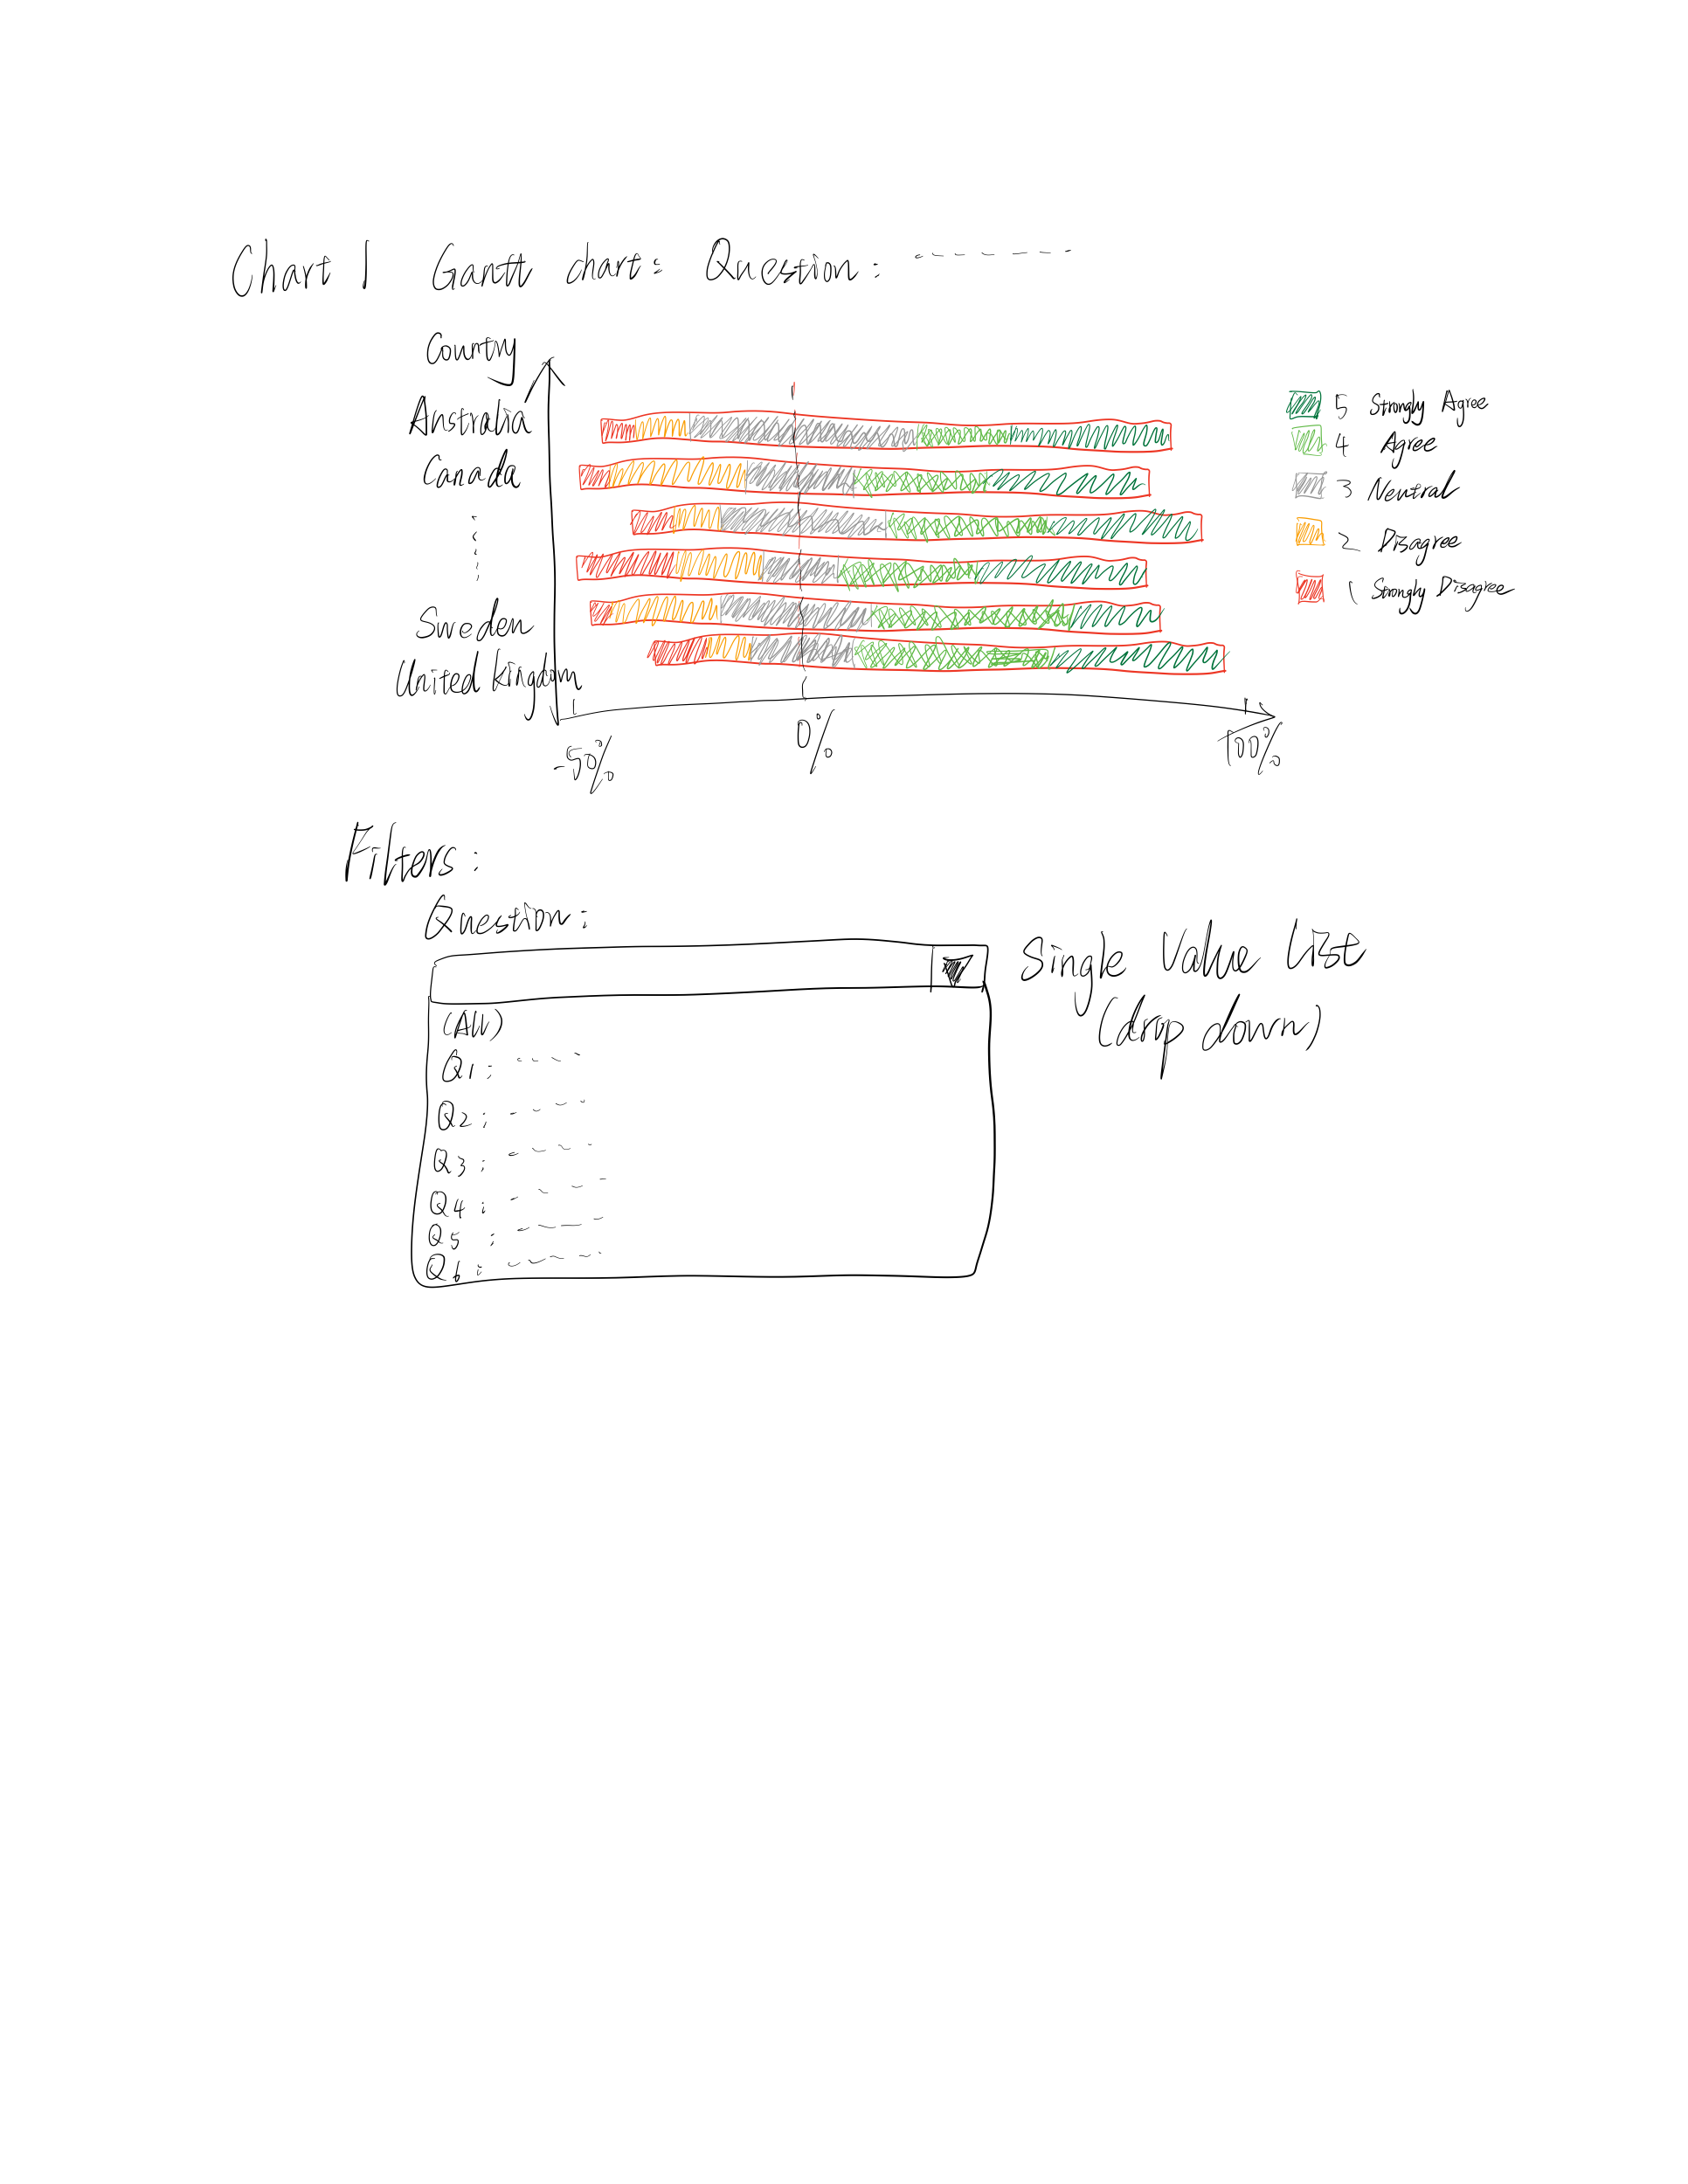 Chart 1 Gantt chart: Question: -------
Country
Australia
Canada
Sweden
United Kingdom
-50%
0%
100%
5 Strongly Agree
4 Agree
3 Neutral
2 Disagree
1 Strongly Disagree
Filters:
Question:
Single Value List
(drop down)
(All)
Q1: ----
Q2: ----
Q3: ----
Q4: ----
Q5: ----
Q6: -----